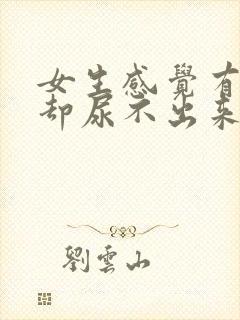 女生感覺有
却尿不出來
劉雲山